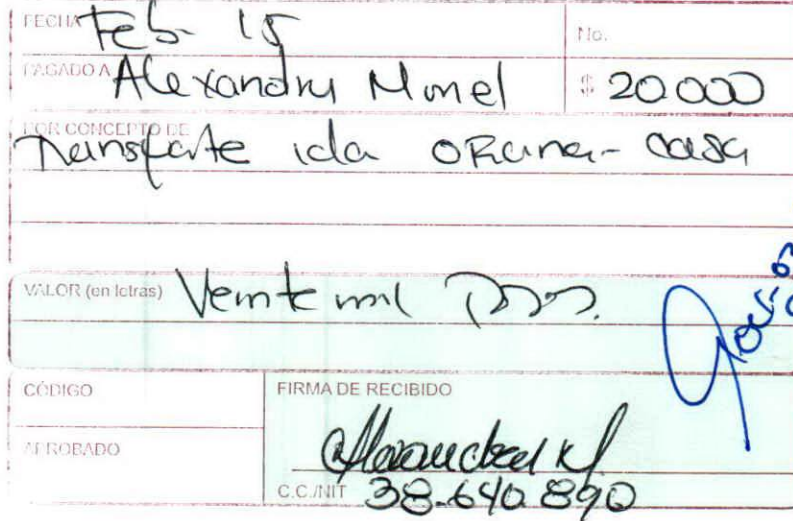 FECHA Feb- 15 No.
PAGADO A Alexandra Monel $ 20000
POR CONCEPTO DE
Transporte ida oficina- casa
VALOR (en letras) Veinte mil
CÓDIGO FIRMA DE RECIBIDO
APROBADO
C.C./NIT 38.640.890